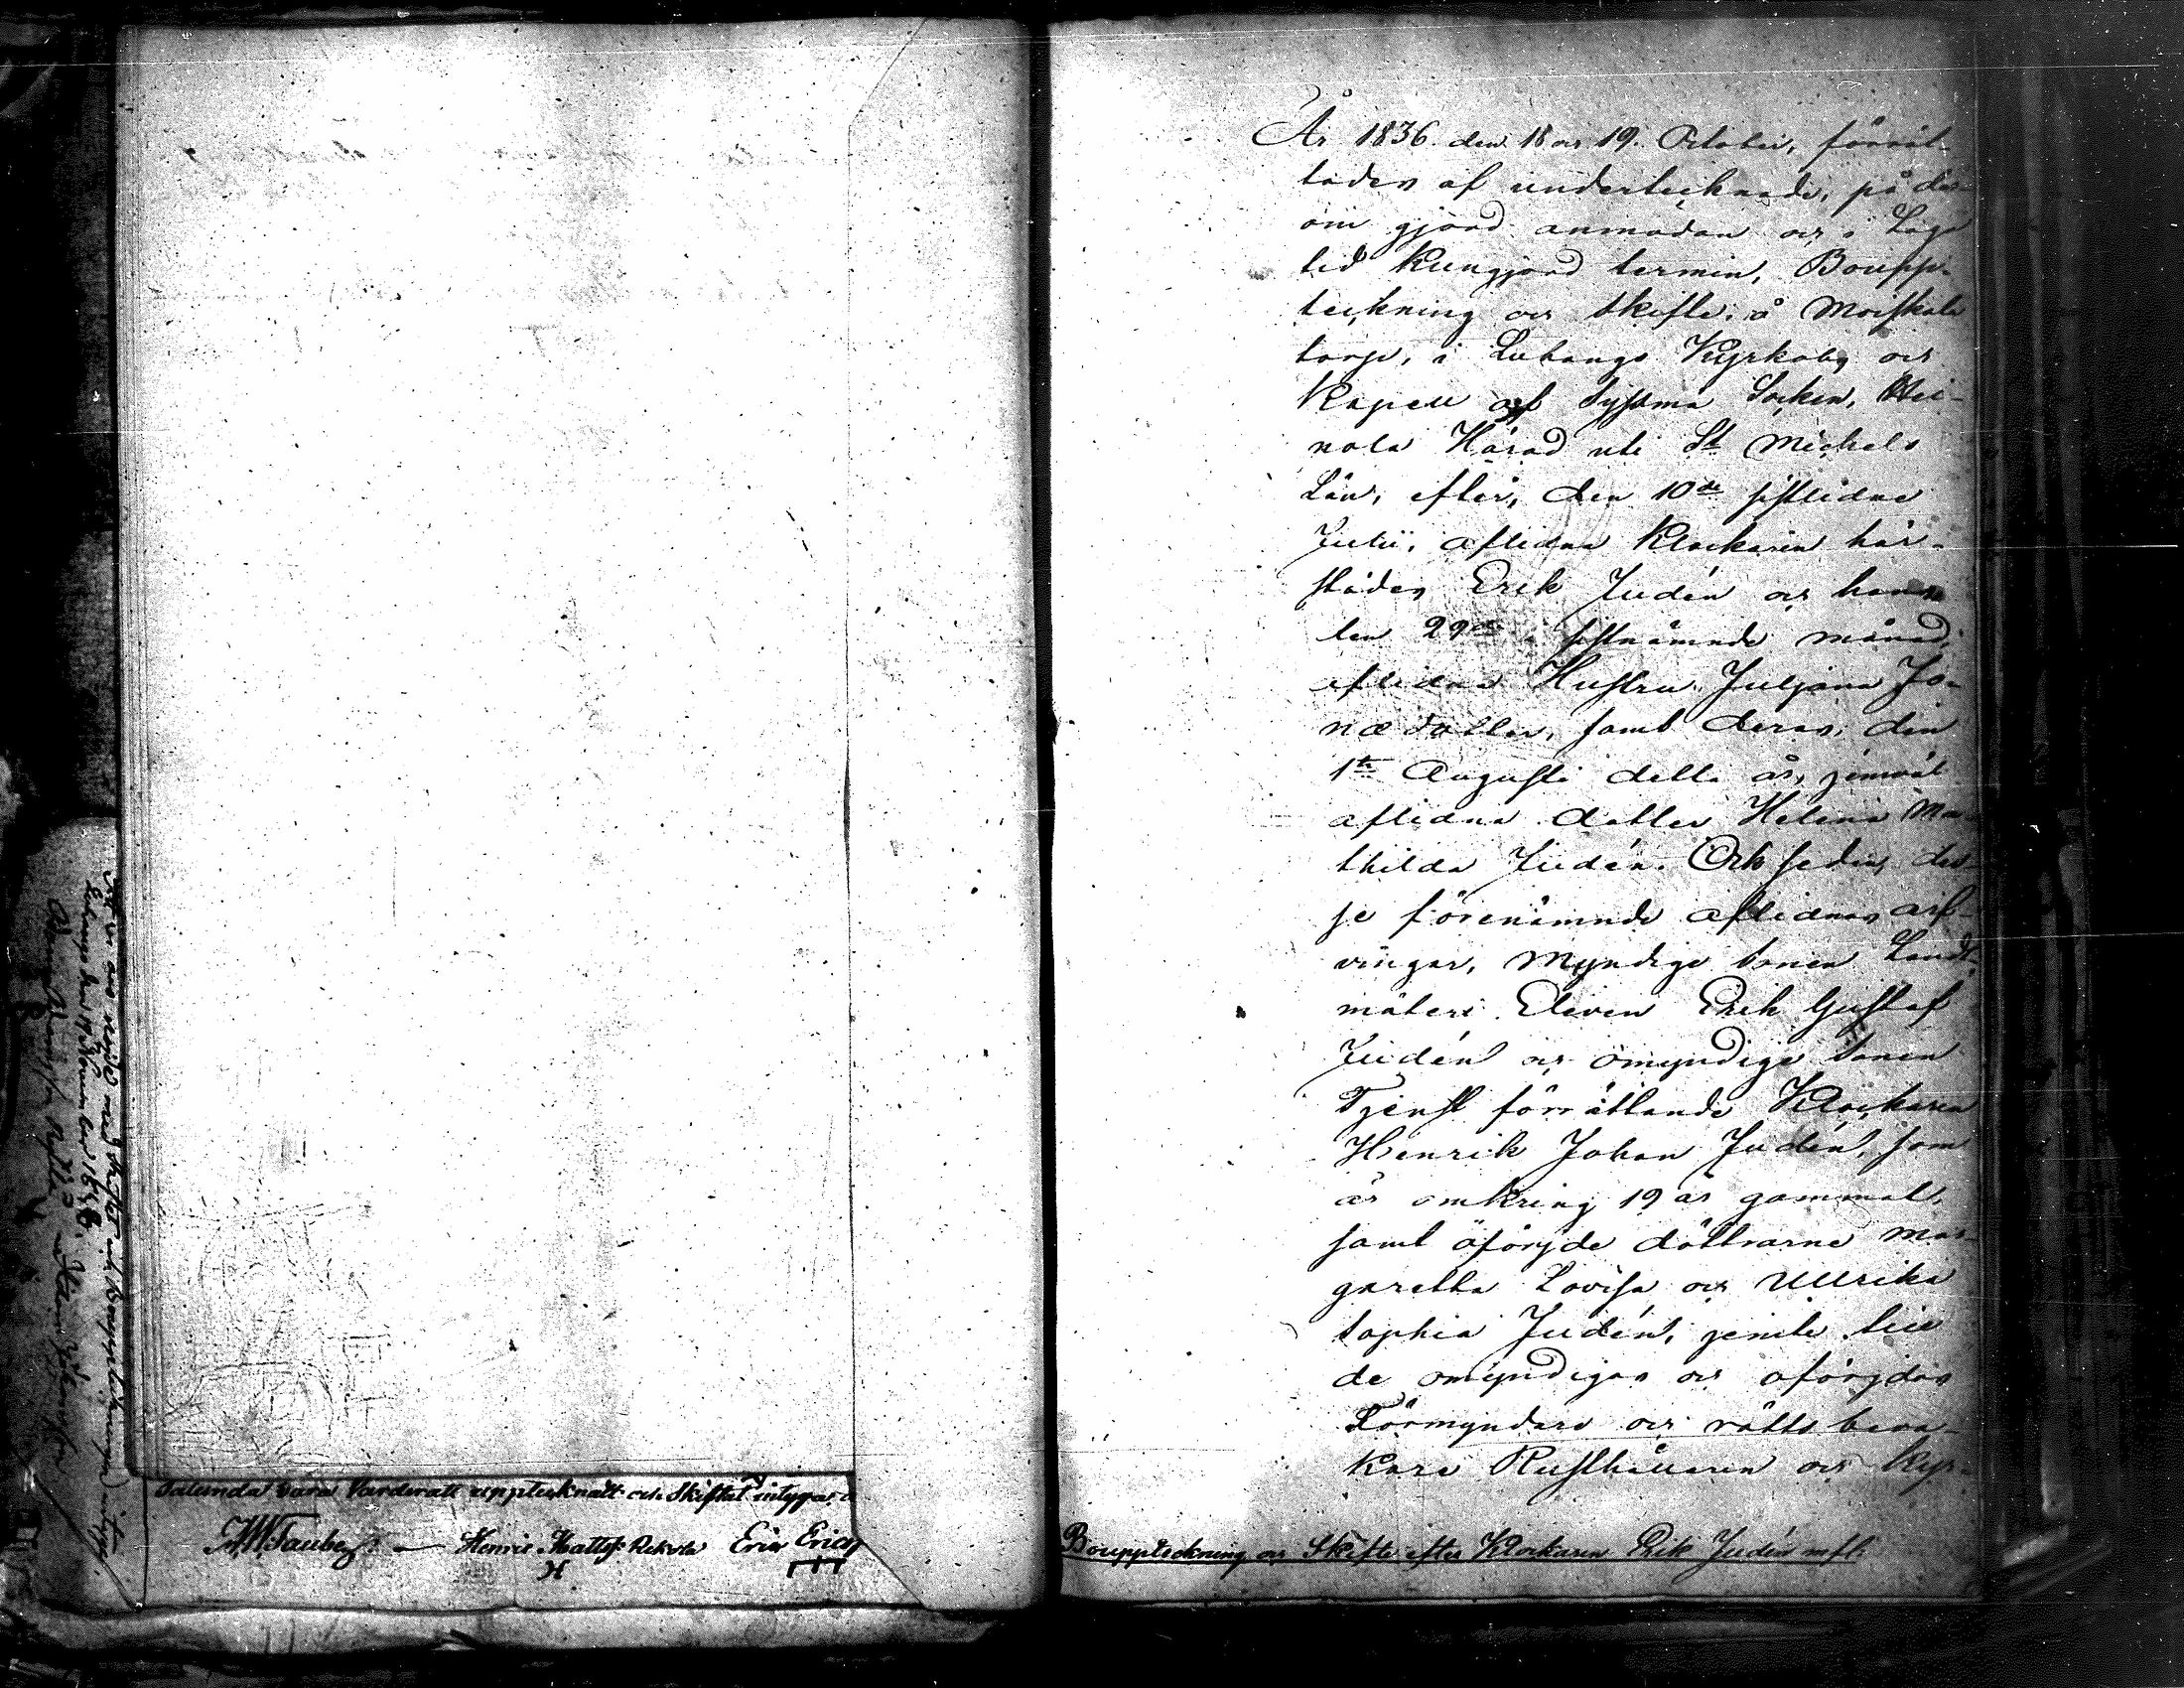 Sålunda vara Värderatt upptecknatt och Skiftat intygar
Henric Mattss. Eric Erics
År 1836 den 18 och 19 October, förrät-
tades af undertecknade, på der-
om gjord anmodan och i Laga
tid kungjord termin, Boupp-
teckning och skifte, å
torp, i Luhango Kyrkoby och
Kapell af Sysmä Socken, Hei-
nola Härad uti St Michels
Län, efter, den 10de sistlidne
Julii, aflidna Klockaren här-
städes Erik Judén och hans
den 29de sistnämnde månad,
aflidna Hustru Juljana Jo-
næ dotter, samt deras, den
1ste Augusti detta år, jemväl
aflidna dotter Helena Ma-
thilda Judén. Och sedan des-
se förenämnde aflidnas arf-
vingar, Myndige sonen Landt-
mäteri Eleven Erik Gustaf
Judén och omyndige sonen
Tjenst förrättande Klockaren
Henrik Johan Judén, som
är omkring 19 år gammal,
samt oförsjde döttrarne Mar-
garetha Lovisa och Ullrika
Sophia Judén, jemte
de omyndigas och oförsjdas
Förmyndare och rätts beva-
kare Rusthållaren och Kyr-
Bouppteckning och Skifte efter Klockaren Erik Judén m fl.